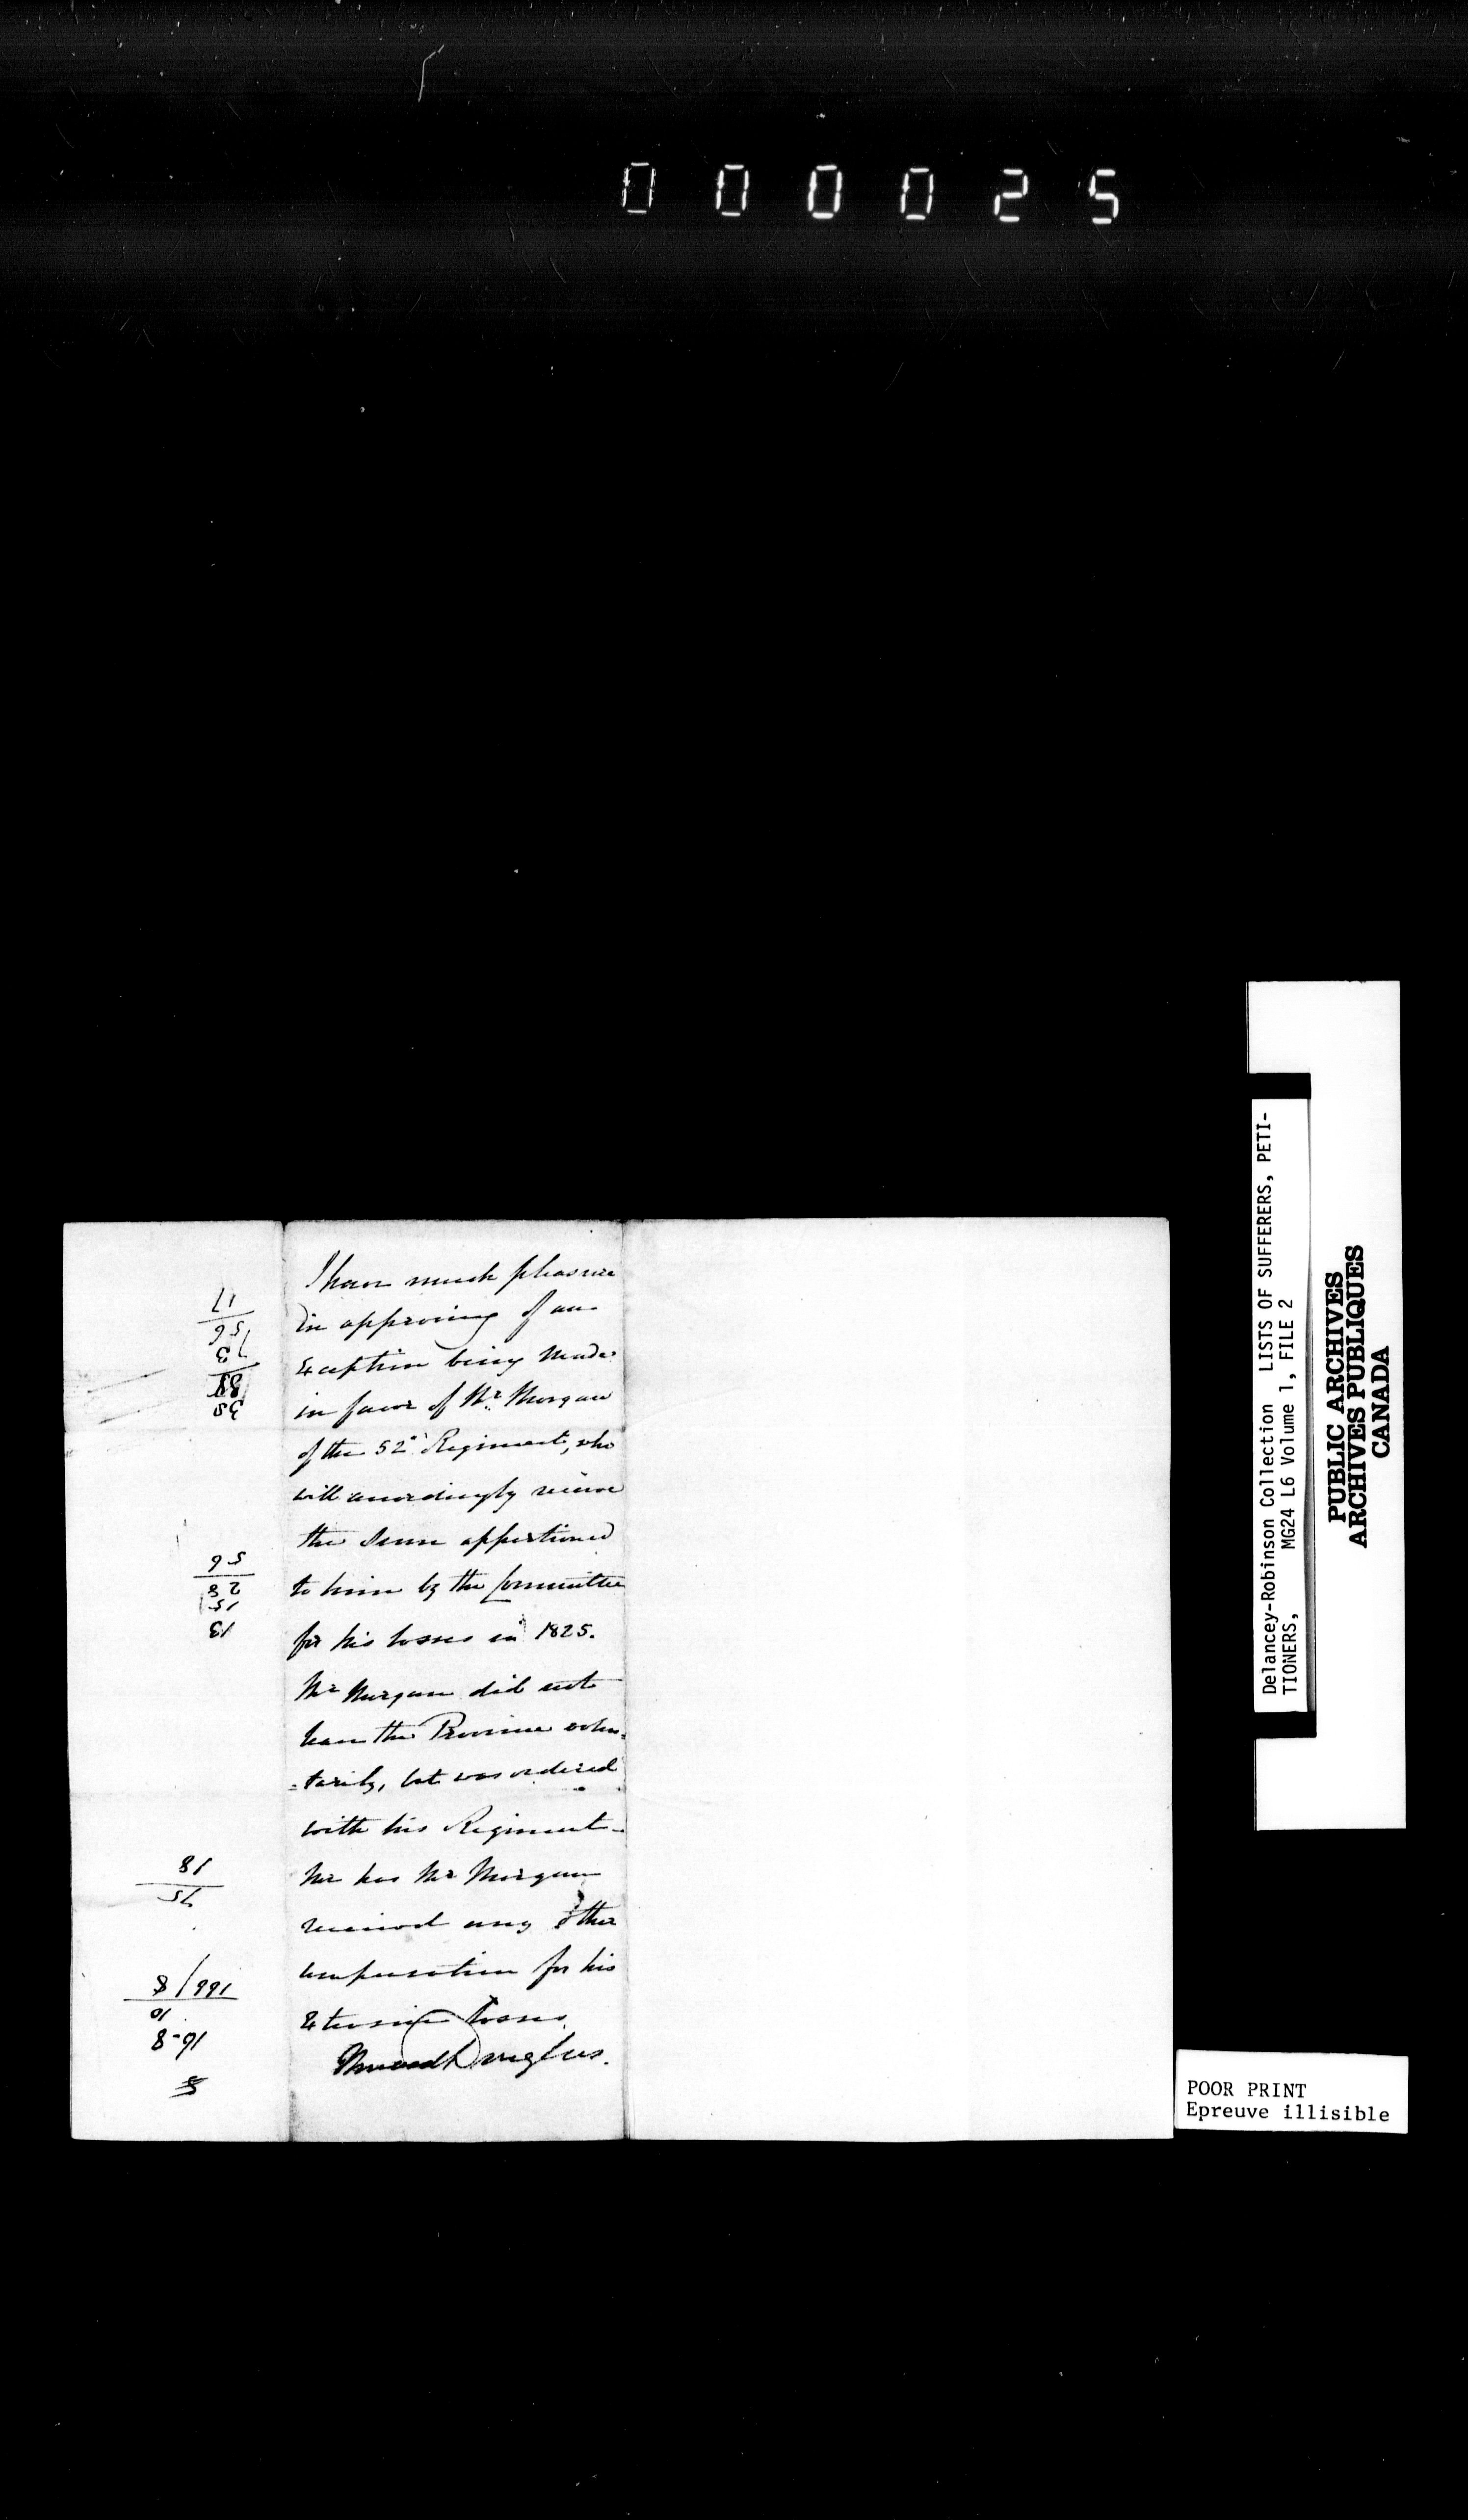 000025
I have much pleasure
in approving of an
Exception being made
in favor of Mr. Morgan
of the 52d Regiment, who
will accordingly receive
the Sum apportioned
to him by the Committee
for his losses in 1825.
Mr Morgan did not
leave the Province volun-
-tarily, but was ordered
with his Regiment-
Nor has Mr Morgan
received any other
compensation for his
Extensive Losses.
Howard Douglas.
38
73
56
17
13
15
28
56
75
18
16-8
10
8/166
Delancey-Robinson Collection LISTS OF SUFFERERS, PETI-
TIONERS, MG24 L6 Volume 1, FILE 2
PUBLIC ARCHIVES
ARCHIVES PUBLIQUES
CANADA
POOR PRINT
Epreuve illisible